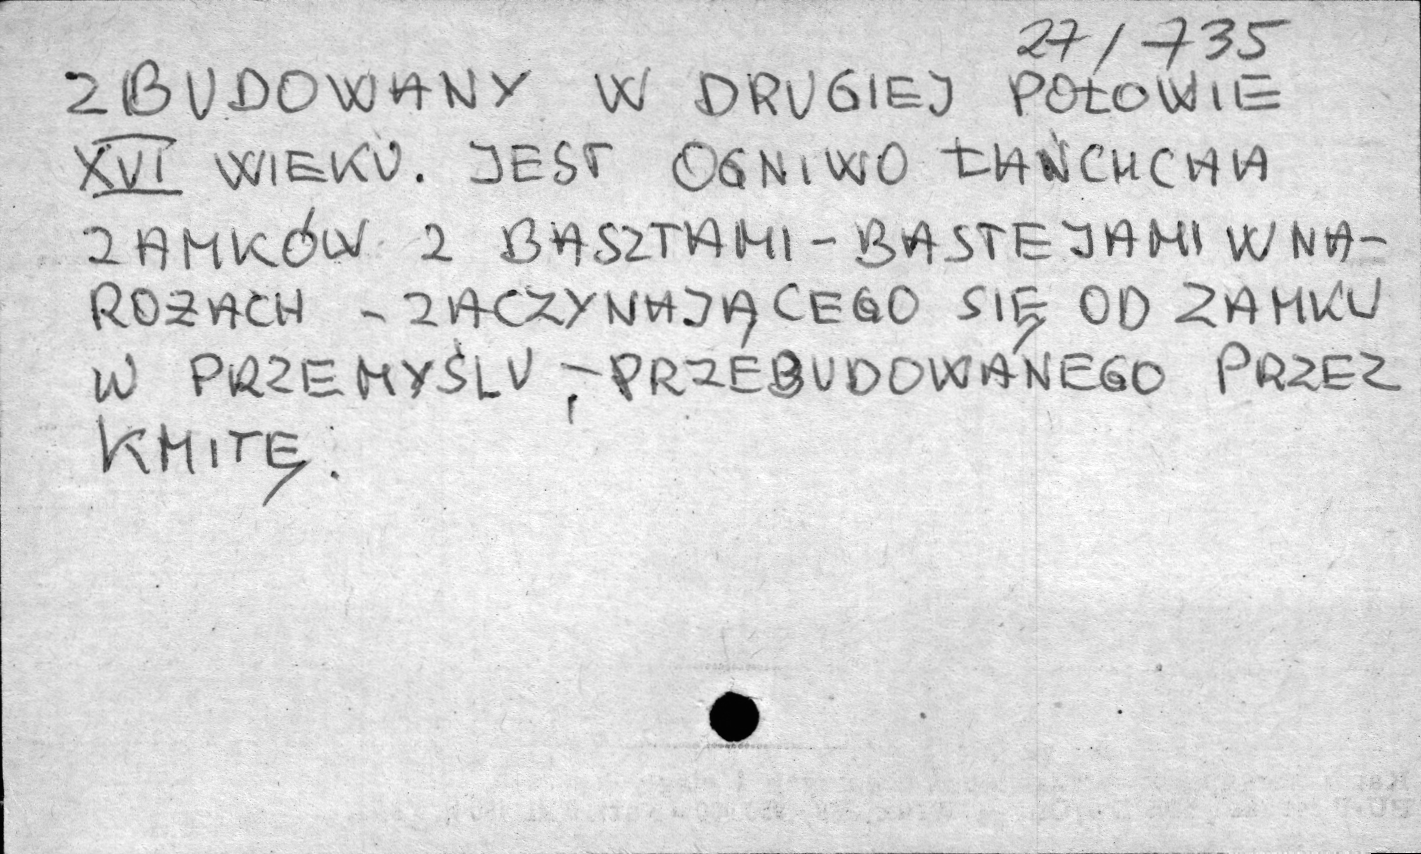 27/735
ZBUDOWANY W DRUGIEJ POŁOWIE
XVI WIEKU. JEST OGNIWO ŁAŃCHCHA
ZAMKÓW Z BASZTAMI - BASTEJAMI W NA-
ROŻACH - ZACZYNAJĄCEGO SIĘ OD ZAMKU
W PRZEMYŚLU, - PRZEBUDOWANEGO PRZEZ
KMITĘ.